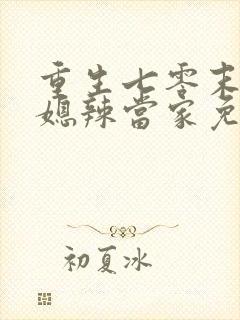 重生七零末
媳辣當家免
初夏冰